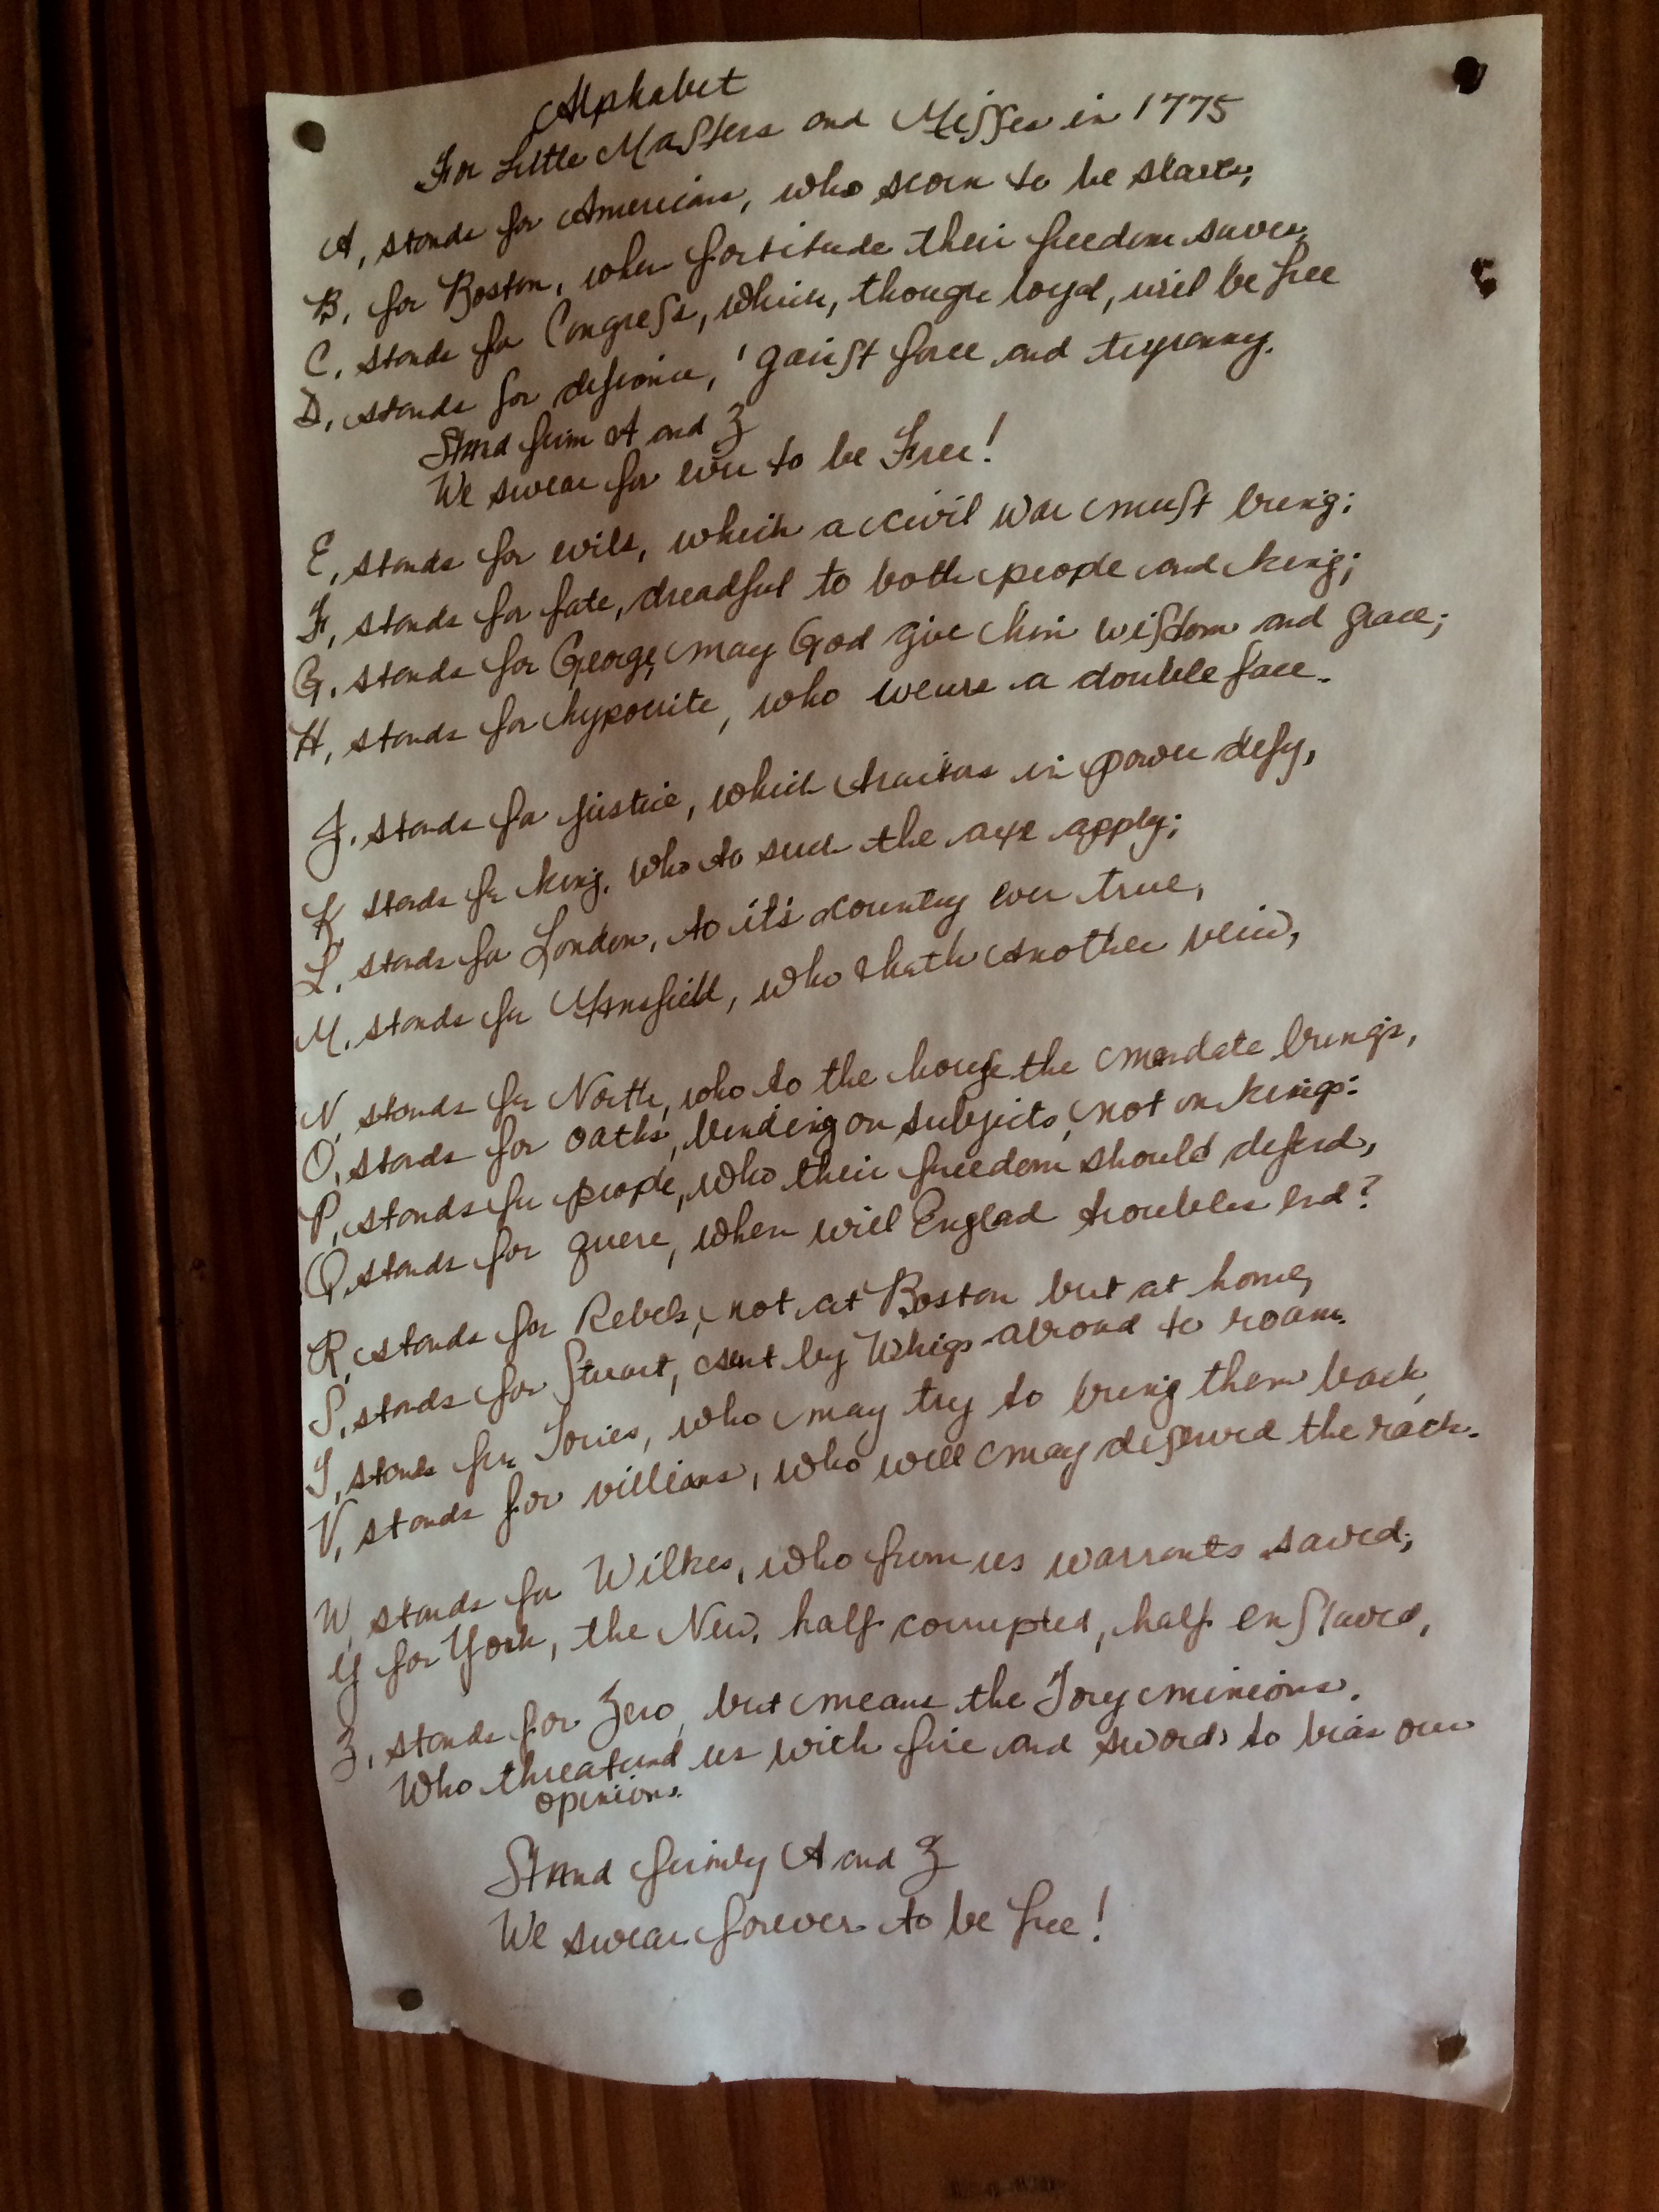 Alphabet
For Little Maſters and Miſſes in 1775
A, stands for Americans, who scorn to be slaves;
B, for Boston, when fortitude their freedom saves;
C, stands for Congreſs, which, though loyal, will be free
D, stands for defiance, 'gainſt force and tyranny.
Stand firm A and Z
We swear for ever to be Free!
E, stands for evils, which a civil war muſt bring;
F, stands for fate, dreadful to both people and king;
G, stands for George, may God give him wiſdom and grace;
H, stands for hypocrite, who wears a double face.
J, stands for justice, which traitors in power defy,
K stands for king, who to such the axe apply;
L, stands for London, to it's country ever true,
M, stands for Mansfield, who hath another veiw,
N, stands for North, who to the houſe the mandate brings,
O, stands for oaths, binding on subjects, not on kings:
P, stands for people, who their freedom should defend,
Q, stands for quere, when will England troubles end?
R, stands for Rebels, not at Boston but at home,
S, stands for Stuart, sent by Whigs abroad to roam.
T, stands for Tories, who may try to bring them back,
V, stands for villians, who well may deſerved the rack.
W, stands for Wilkes, who from us warrants saved;
Y for York, the New, half corrupted, half enſlaved,
Z, stands for Zero, but means the Tory minions.
Who threatend us with fire and swords to bias our
opinions.
Stand firmly A and Z
We swear forever to be free!